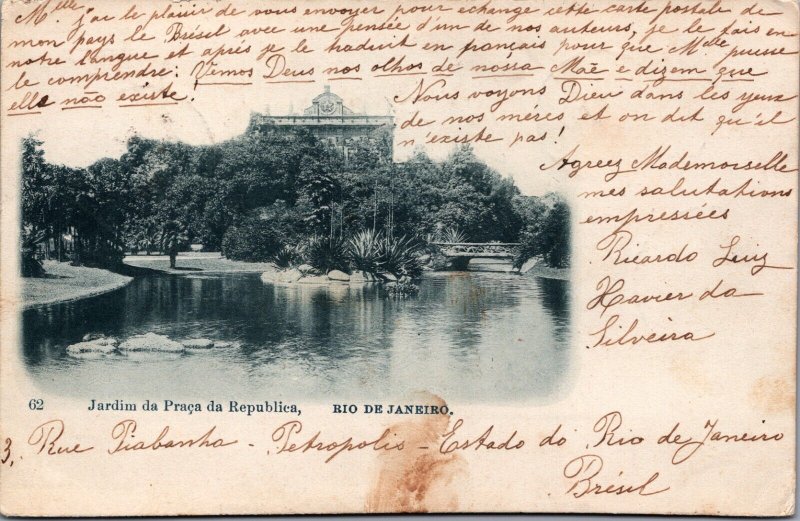 Melle j'ai le plaisir de vous envoyer pour échange cette carte postale de
mon pays le Brésil avec une pensée d'un de nos auteurs, je le fais en
notre langue et après je le traduit en français pour que Melle puesse
le comprendre: Vemos Deus nos olhos de nossa Mãe e dizem que
elle não existe!
Nous voyons Dieu dans les yeux
de nos méres et on dit qu'il
n'existe pas!
Agreez Mademoiselle
mes salutations
empressées
Ricardo Luiz
Xavier da
Silveira
62 Jardim da Praça da Republica, RIO DE JANEIRO.
3, Rue Piabanha - Petropolis - Estado do Rio de Janeiro
Brésil